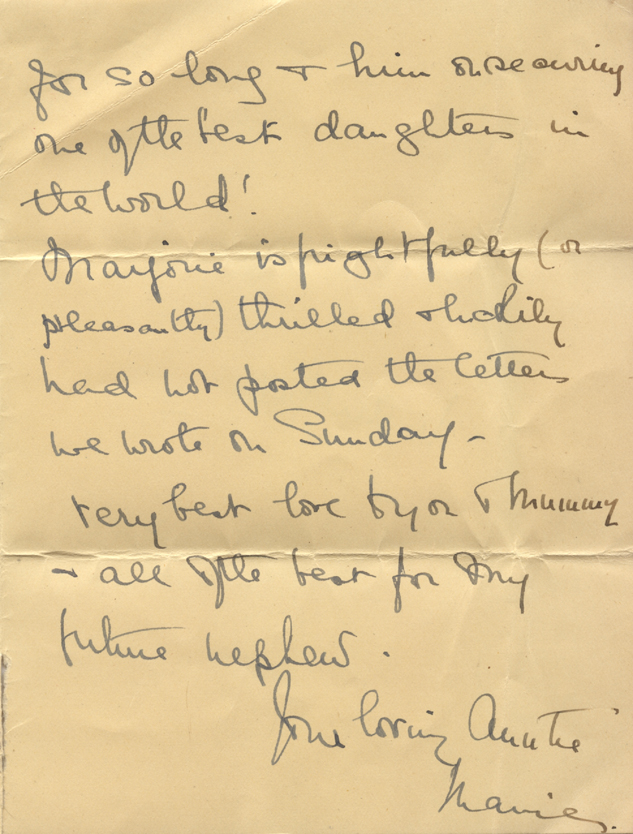 for so long + him on securing
one of the best daughters in
the world!
Marjorie is frightfully (or
pleasantly) thrilled + luckily
had not posted the letters
we wrote on Sunday -
Very best love to you + Mummy
+ all of the best for my
future nephew.
Your loving Auntie
Marie.